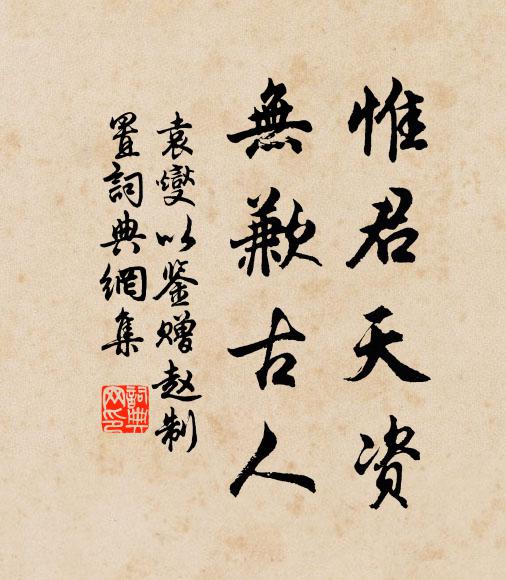 惟君天资
無歉古人
袁燮以鉴赠赵制
置詞典網集
詞典
网印